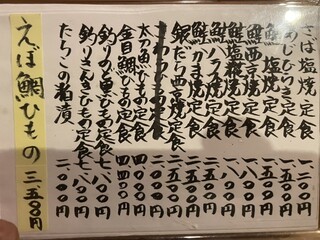 さば塩焼定食 一二〇〇円
あじひらき定食 一一〇〇円
鮭塩焼定食 一五〇〇円
鮭西京焼定食 一五〇〇円
鮭塩糀焼定食
鮭ハラス焼定食 一八〇〇円
鮭かま焼定食 一二〇〇円
銀だら西京焼定食 二五〇〇円
定食 一五〇〇円
太刀魚ひもの定食 二二〇〇円
金目鯛ひもの定食 四四〇〇円
釣りのど黒ひもの定食 七八〇〇円
釣りさんきひもの定食 一八〇〇円
たらこの粕漬 一〇〇〇円
えぼ鯛ひもの 三五〇〇円